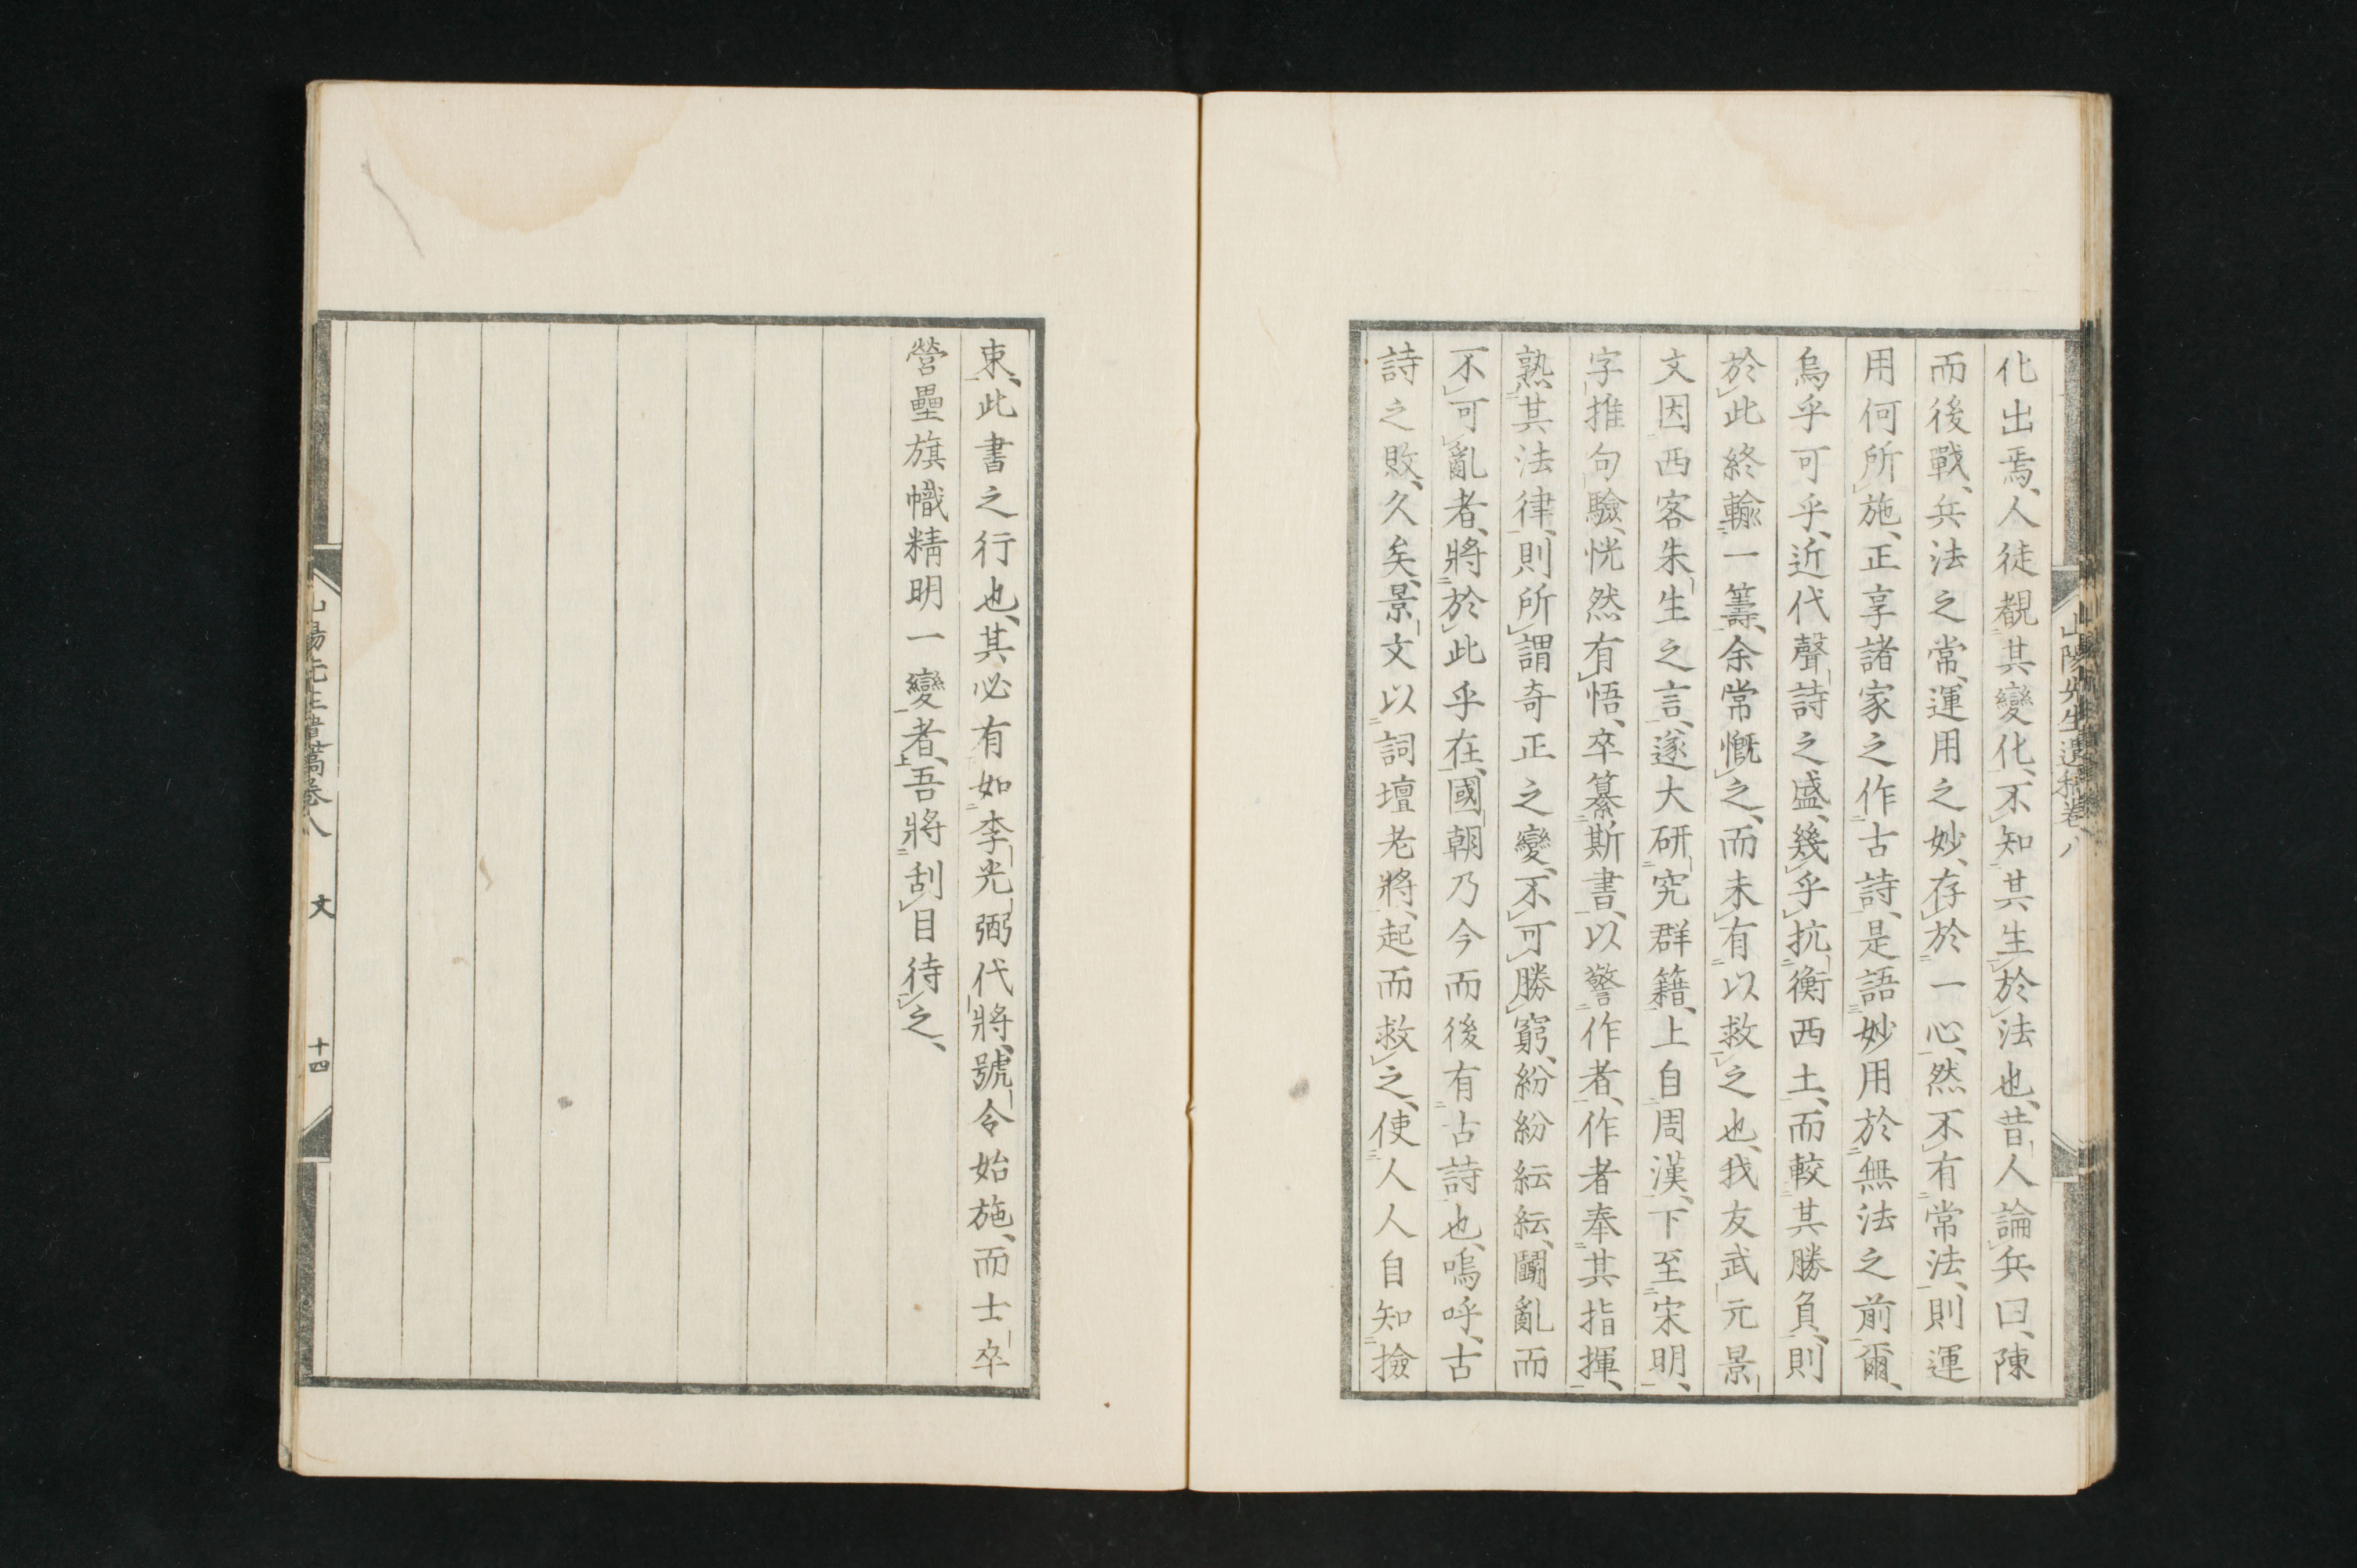 化出焉、人徒覩其變化、不知其生於法也、昔人論兵曰、陳
而後戰、兵法之常、運用之妙、存於一心、然不有常法、則運
用何所施、正享諸家之作古詩、是語妙用於無法之前爾、
烏乎可乎、近代聲詩之盛、幾乎抗衡西土、而較其勝負、則
於此終輸一籌、余常慨之、而未有以救之也、我友武元景
文因西客朱生之言、遂大研究群籍、上自周漢、下至宋明、
字推句驗、恍然有悟、卒纂斯書、以警作者、作者奉其指揮、
熟其法律、則所謂奇正之變、不可勝窮、紛紛紜紜、鬭亂而
不可亂者、將於此乎在、國朝乃今而後有古詩也、嗚呼、古
詩之敗、久矣、景文以詞壇老將、起而救之、使人人自知撿
山陽先生遺稿卷八
東、此書之行也、其必有如李光弼代將、號令始施、而士卒
營壘旗幟精明一變者、吾將刮目待之、
山陽先生遺稿卷八 文 十四